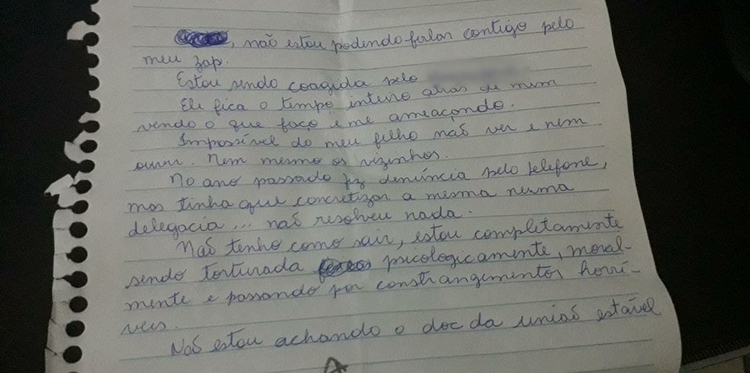 , não estou podendo falar contigo pelo
meu zap.
Estou sendo coagida pelo
Ele fica o tempo inteiro atras de mim
vendo o que faço e me ameaçondo.
Impossível do meu filho naõ ver e nem
ouvir. Nem mesmo os vizinhos.
No ano passado fiz denúncia pelo telefone,
mas tinha que concretizar a mesma numa
delegacia... naõ resolveu nada.
Naõ tenho como sair, estou completamente
sendo torturada psicologicamente, moral-
mente e passando por constrangimentos horrí-
veis.
Naõ estou achando o doc da uniaõ estável